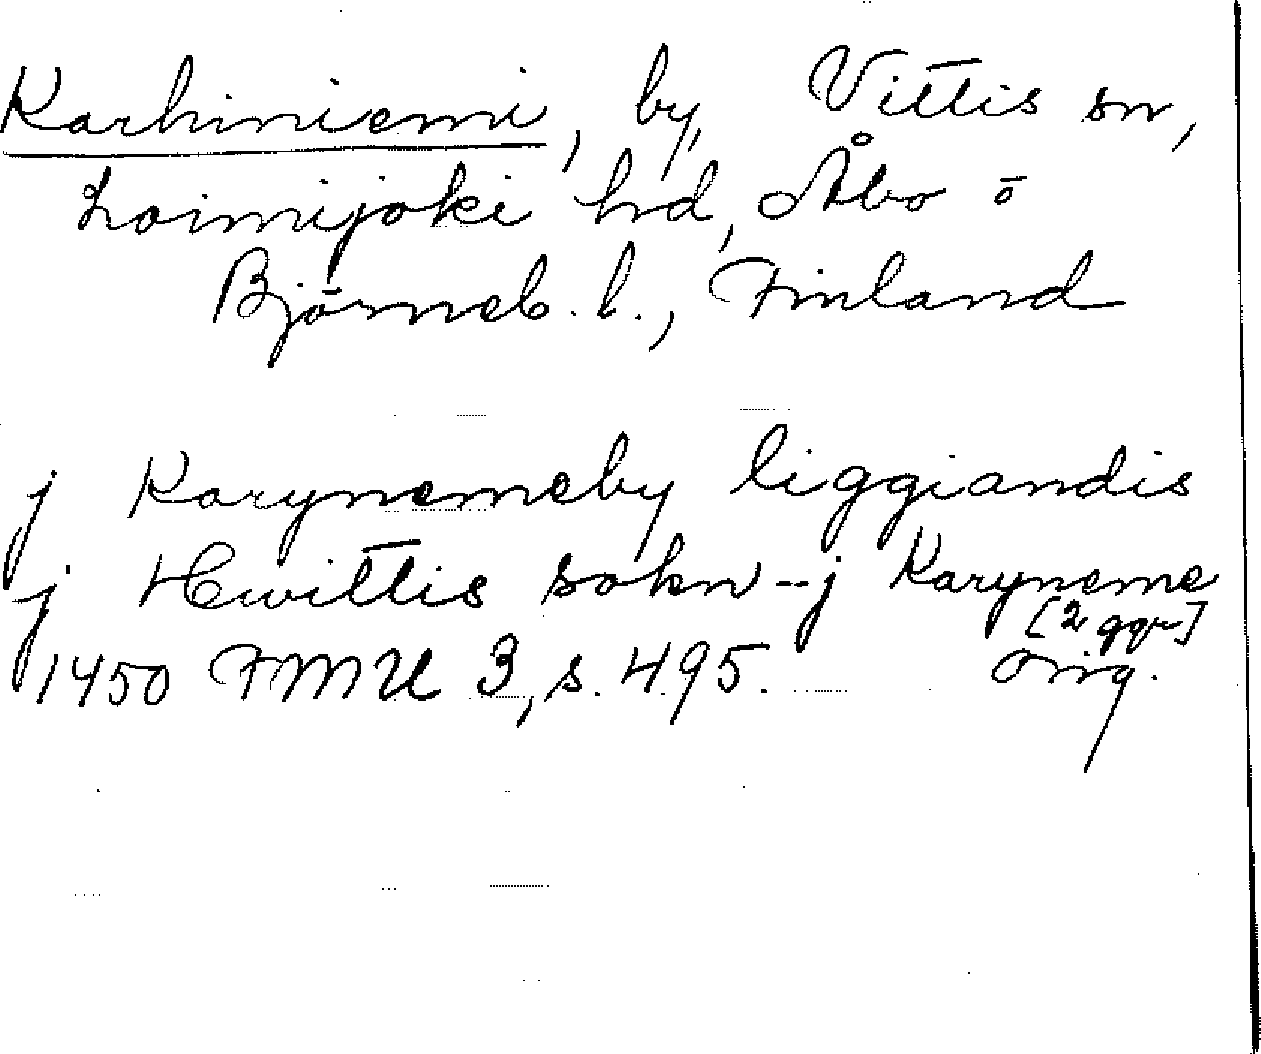 Karhiniemi, by, Vittis sn,
Loimijoki hd, Åbo o
Björneb. l., Finland
j Karynemeby liggiandis
j Hwittis sokn -- j Karyneme
[2 ggr]
1450 FMU 3, s. 495. Orig.